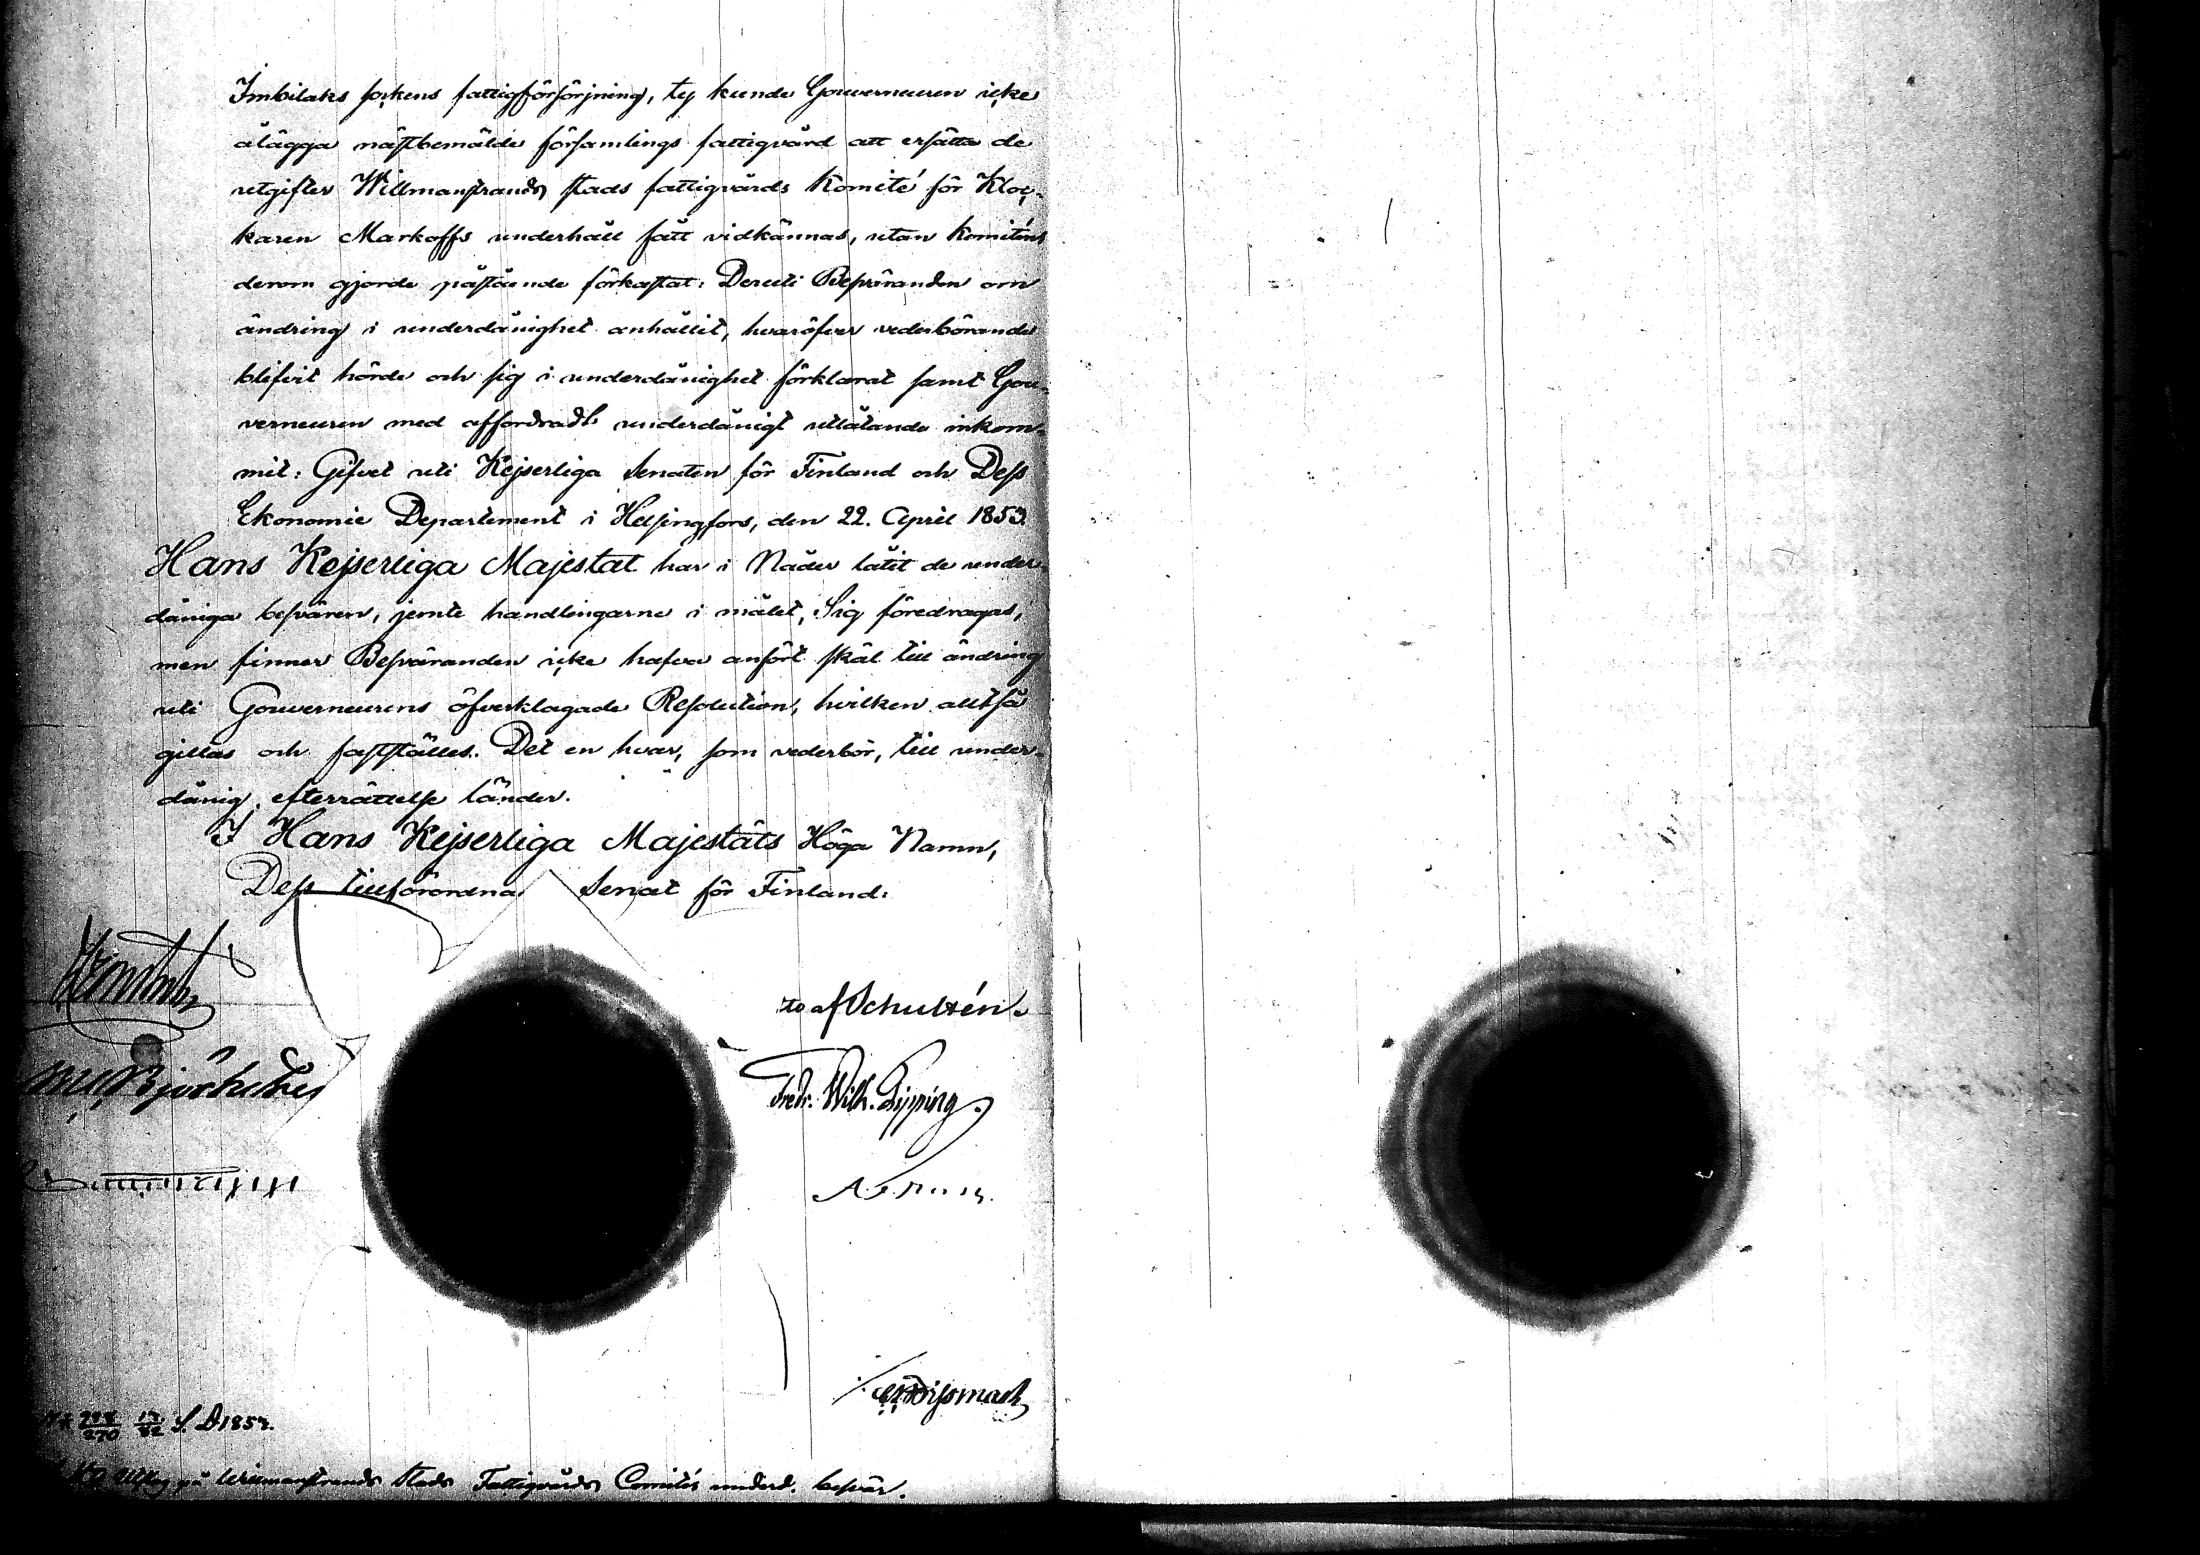 Imbilaks sokens fattigförsörjning, ty kunde Gouverneuren icke
ålägga nästbemälde församlings fattigvård att ersätta de
utgifter Willmanstrands stads fattigvårds Komité för Kloc-
karen Markoffs underhåll fått vidkännas, utan Komiténs
derom gjorde påstående förkastat: Deruti Besväranden om
ändring i underdånighet anhållit, hvaröfver vederbörande
blifvit hörde och sig i underdånighet förklarat samt Gou-
verneuren med affordradt underdånigt utlåtande inkom-
mit: Gifvet uti Kejserliga Senaten för Finland och Dess
Ekonomie Departement i Helsingfors, den 22. April 1853
Hans Kejserliga Majestät har i Nåder låtit de under-
dåniga besvären, jemte handlingarne i målet, Sig föredragas,
men finner Besväranden icke hafva anfört skäl till ändring
uti Gouverneurens öfverklagade Resolution, hvilken alltså
gillas och fastställes. Det en hvar, som vederbör, till under-
dånig efterrättelse länder.
I Hans Kejserliga Majestäts Höga Namn,
Dess tillförordna Senat för Finland:
af Schultén.
Fredr. Wilh. Pipping.
S. D 1853.
på Willmanstrands Stads Fattigvårds Comités underd. besvär.